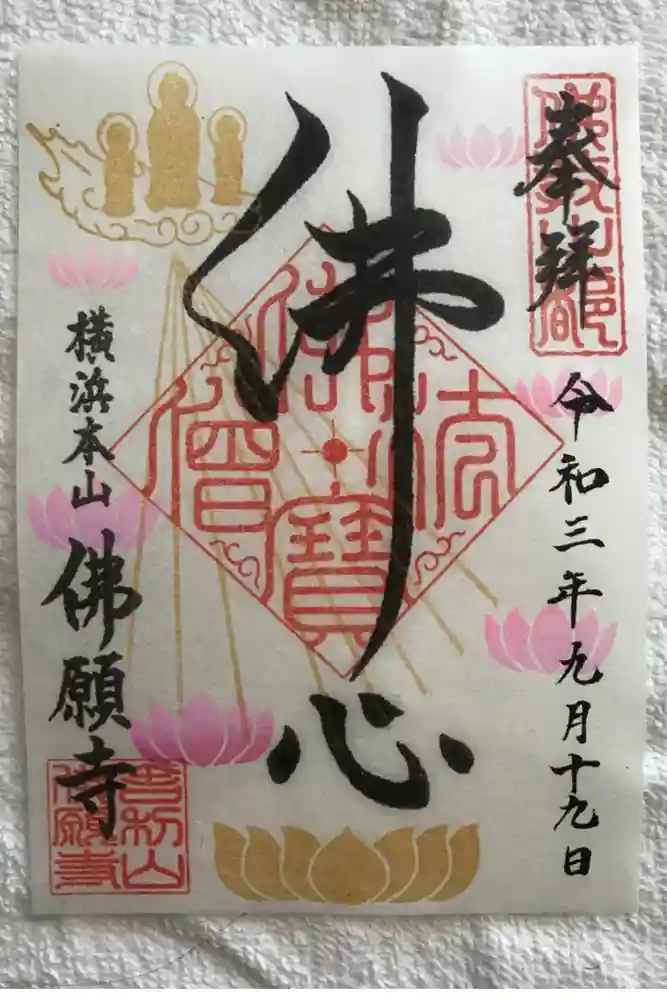 奉拝
令和三年九月十九日
佛心
佛法僧寳
横浜本山 佛願寺